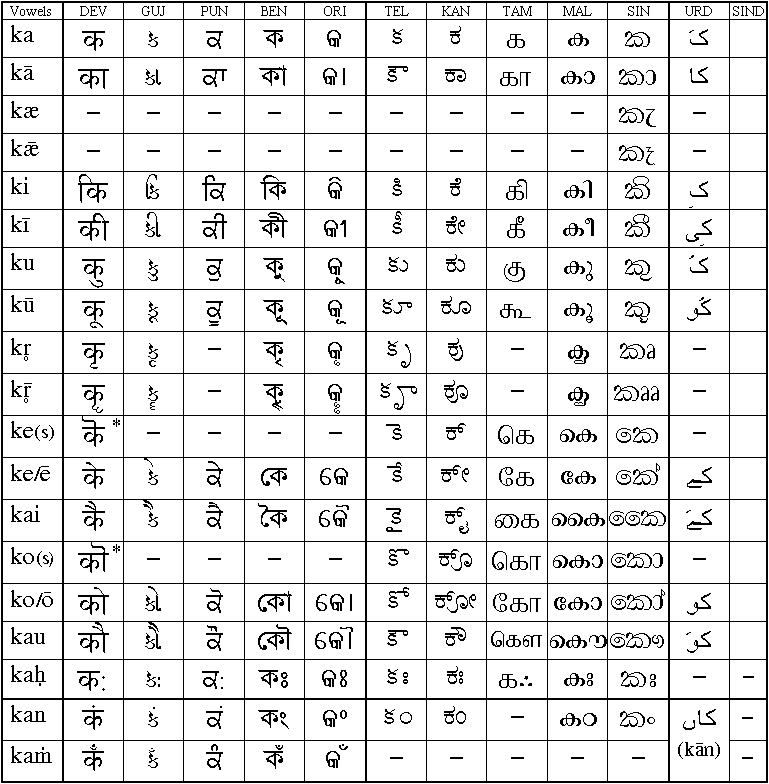 Vowels DEV GUJ PUN BEN ORI TEL KAN TAM MAL SIN URD SIND
ka क ક ਕ ক କ క ಕ க ക ක کَ
kā का કા ਕਾ কা କା కా ಕಾ கா കാ කා کا
kæ – – – – – – – – – කැ –
kǣ – – – – – – – – – කෑ –
ki कि કિ ਕਿ কি କି కి ಕಿ கி കി කි کِ
kī की કી ਕੀ কী କୀ కీ ಕೀ கீ കീ කී کی
ku कु કુ ਕੁ কু କୁ కు ಕು கு കു කු کُ
kū कू કૂ ਕੂ কূ କୂ కూ ಕೂ கூ കൂ කූ کُو
kr̥ कृ કૃ – কৃ କୃ కృ ಕೃ – കൃ කෘ –
kr̥̄ कॄ કૄ – কৄ କୄ కౄ ಕೄ – කෲ –
ke(s) कॆ * – – – – కె ಕೆ கெ കെ කෙ –
ke/ē के કે ਕੇ কে କେ కే ಕೇ கே കേ කේ کے
kai कै કૈ ਕੈ কৈ କୈ కై ಕೈ கை കൈ කෛ کَے
ko(s) कॊ * – – – – కొ ಕೊ கொ കൊ කො –
ko/ō को કો ਕੋ কো କୋ కో ಕೋ கோ കോ කෝ کو
kau कौ કૌ ਕੌ কৌ କୌ కౌ ಕೌ கௌ കൌ කෞ کَو
kaḥ कः કઃ ਕਃ কঃ କଃ కః ಕಃ கஃ കഃ කඃ – –
kan कं કં ਕਂ কং କଂ కం ಕಂ – കം කං کاں –
(kān)
kaṁ कँ કઁ ਕੰ কঁ କଁ – – – – – –